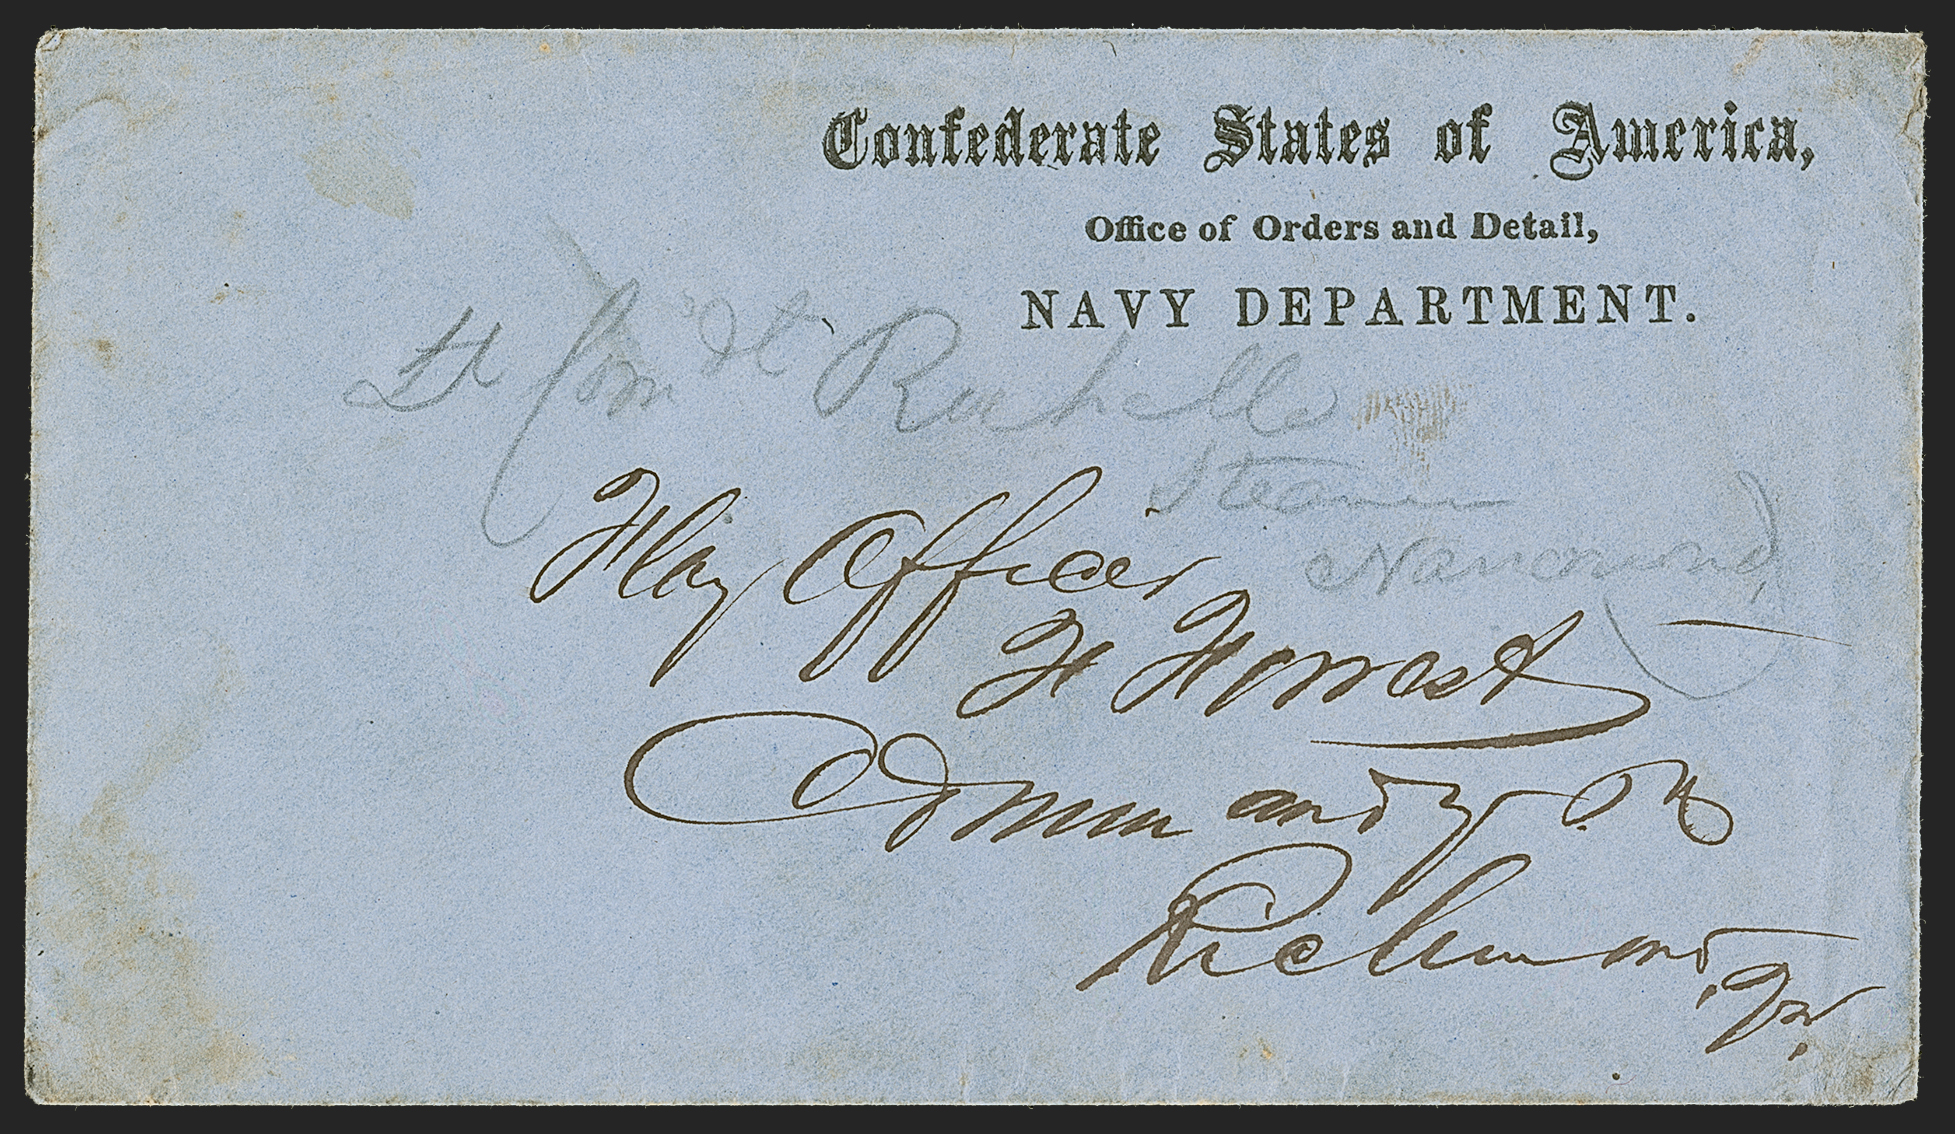 Confederate States of America,
Office of Orders and Detail,
NAVY DEPARTMENT.
Lt Com'dt Rochelle
Steamer
Nansemond
Flag Officer
F Forrest
Commandg
Richmond,
Va.